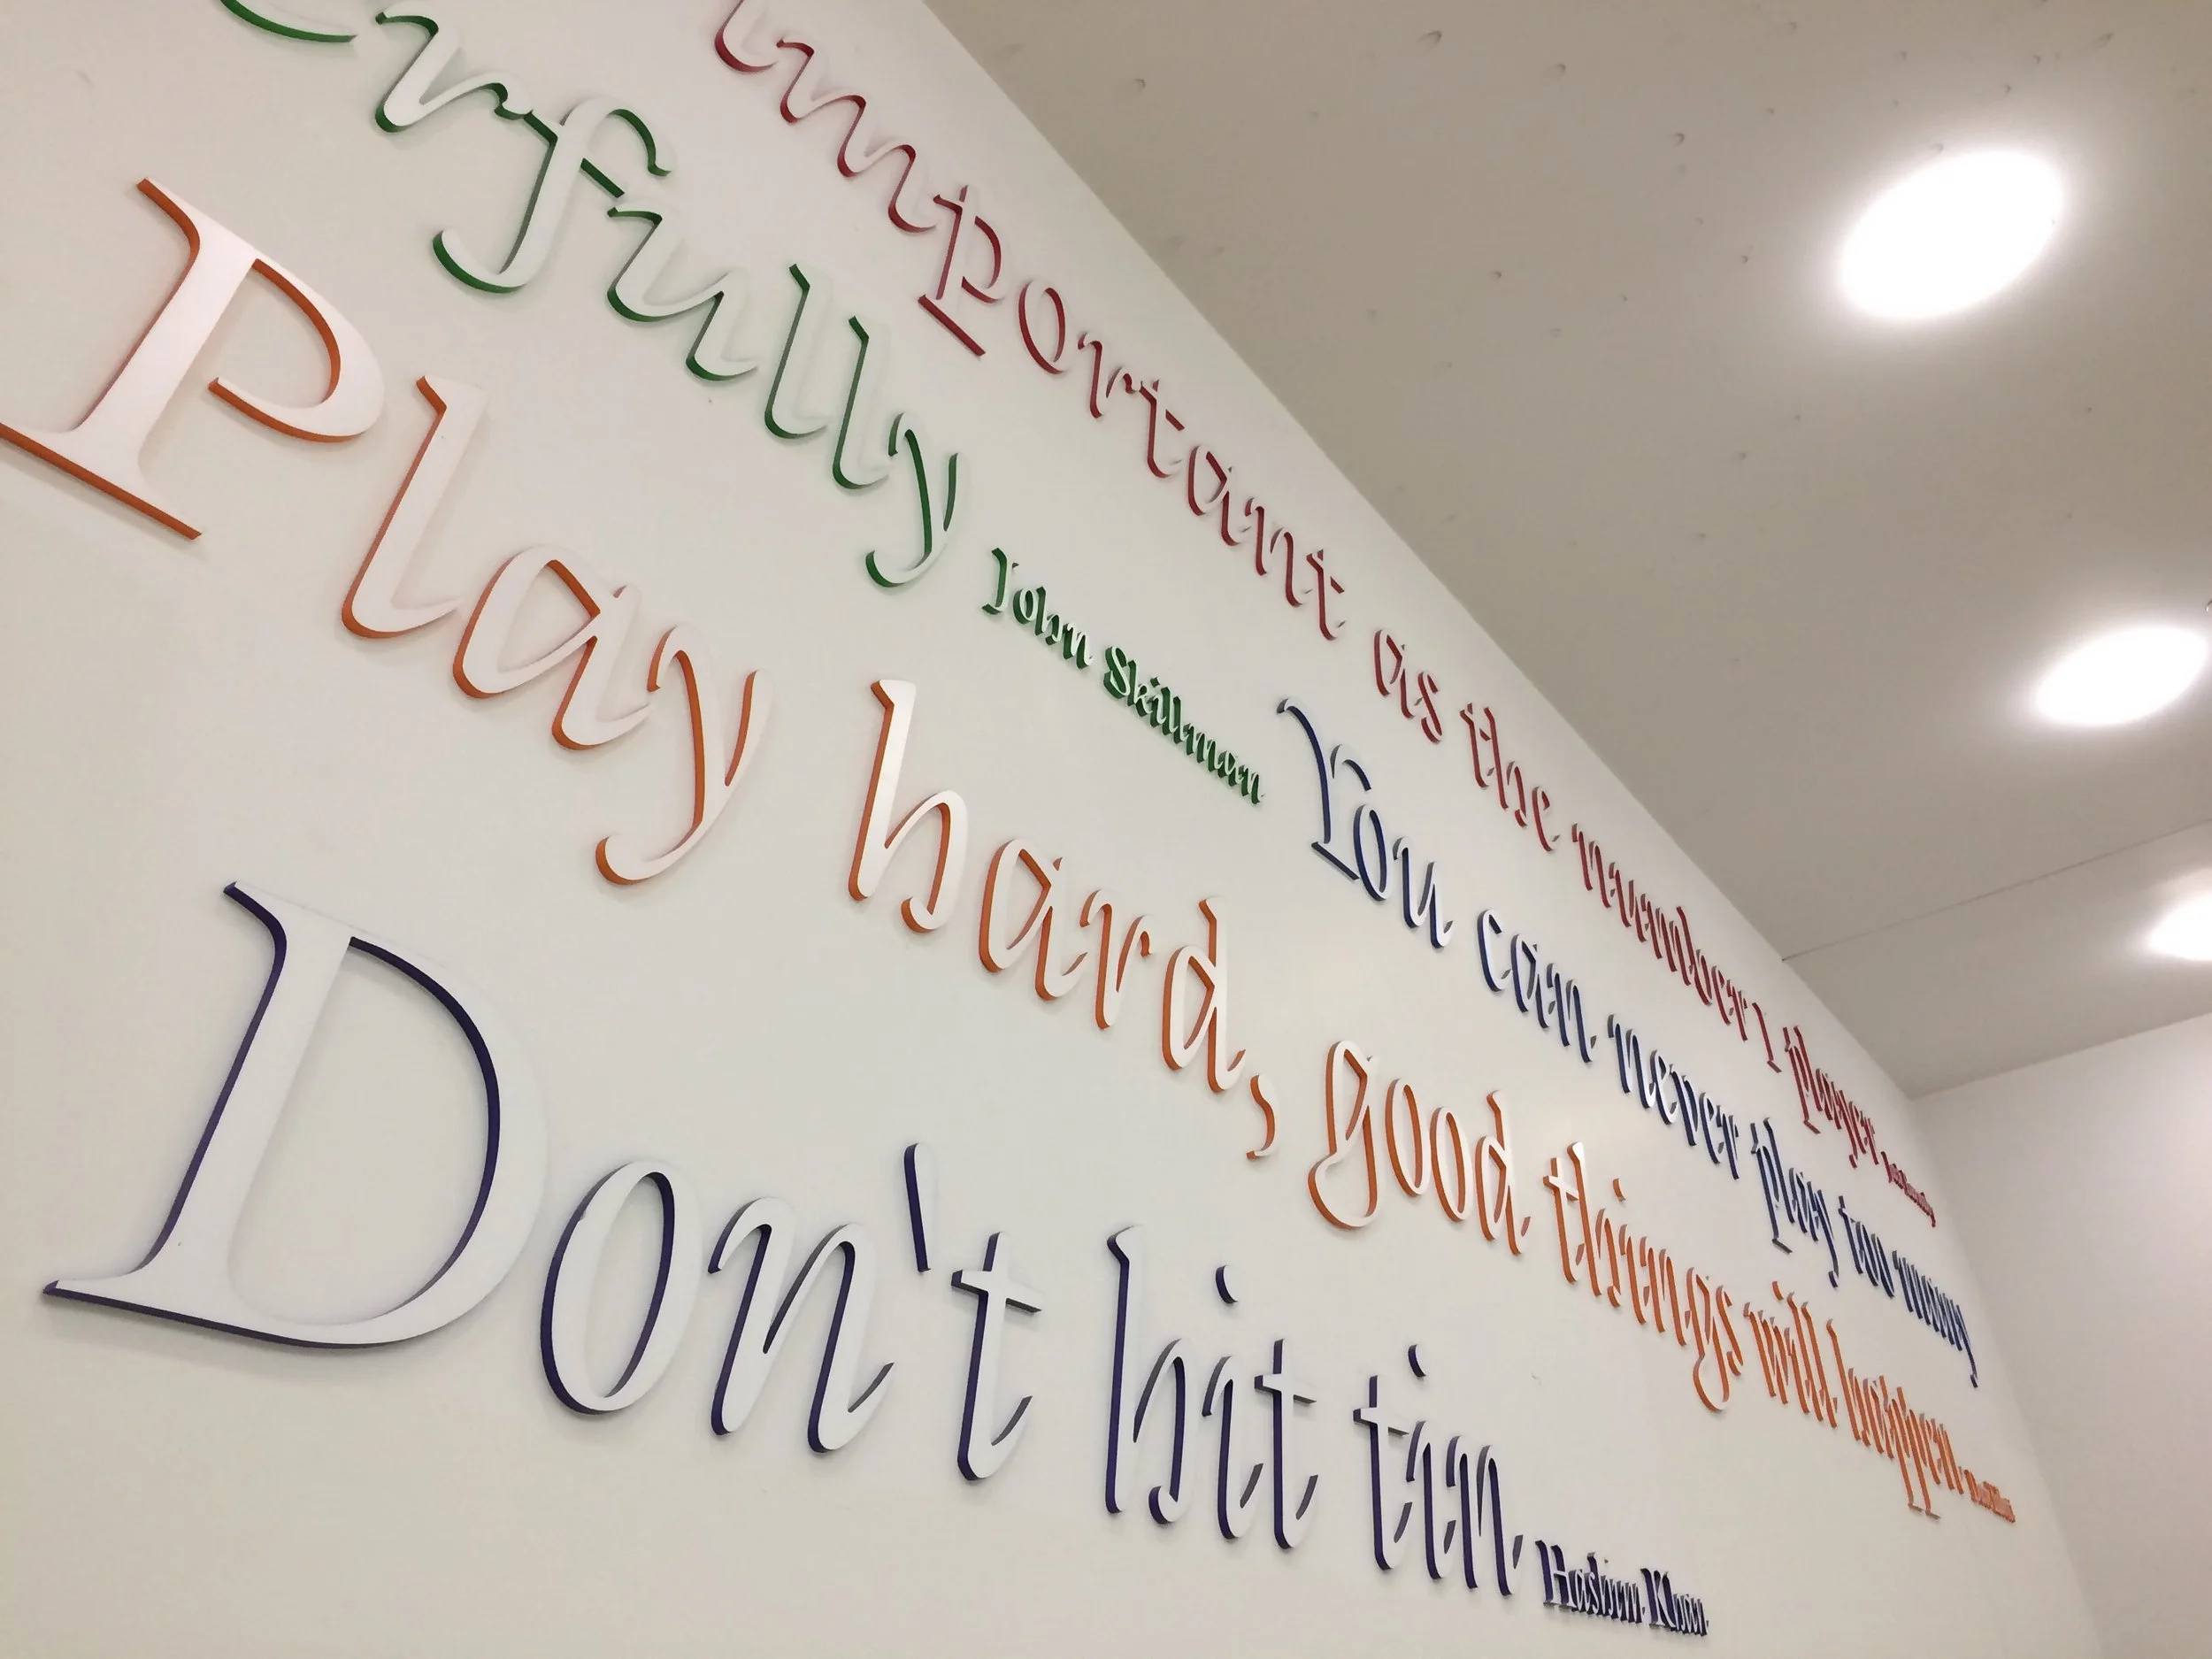 important as the number 1 player
erfully John Skillman You can never play too many
Play hard, good things will happen
Don't hit tin Hashim Khan